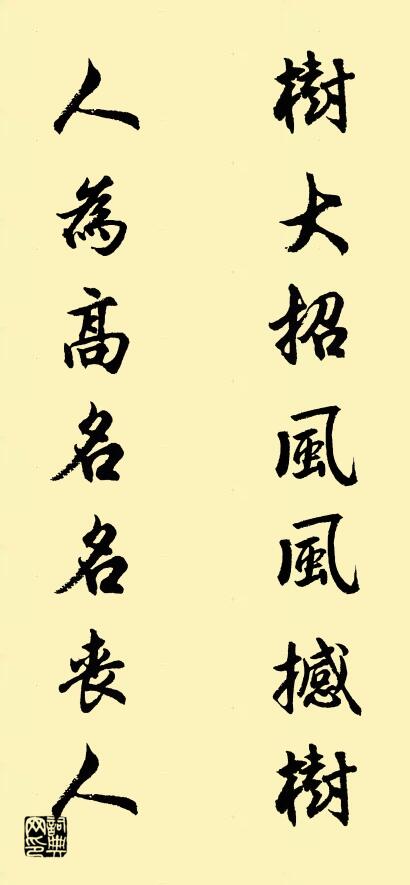 樹大招風風撼樹
人為髙名名喪人
詞典网印